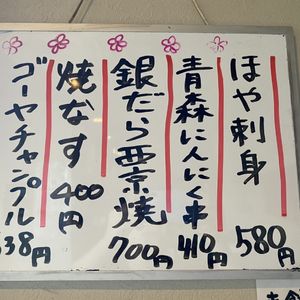 ほや刺身 580円
青森にんにく串 410円
銀だら西京焼 700円
焼なす 400円
ゴーヤチャンプル 38円